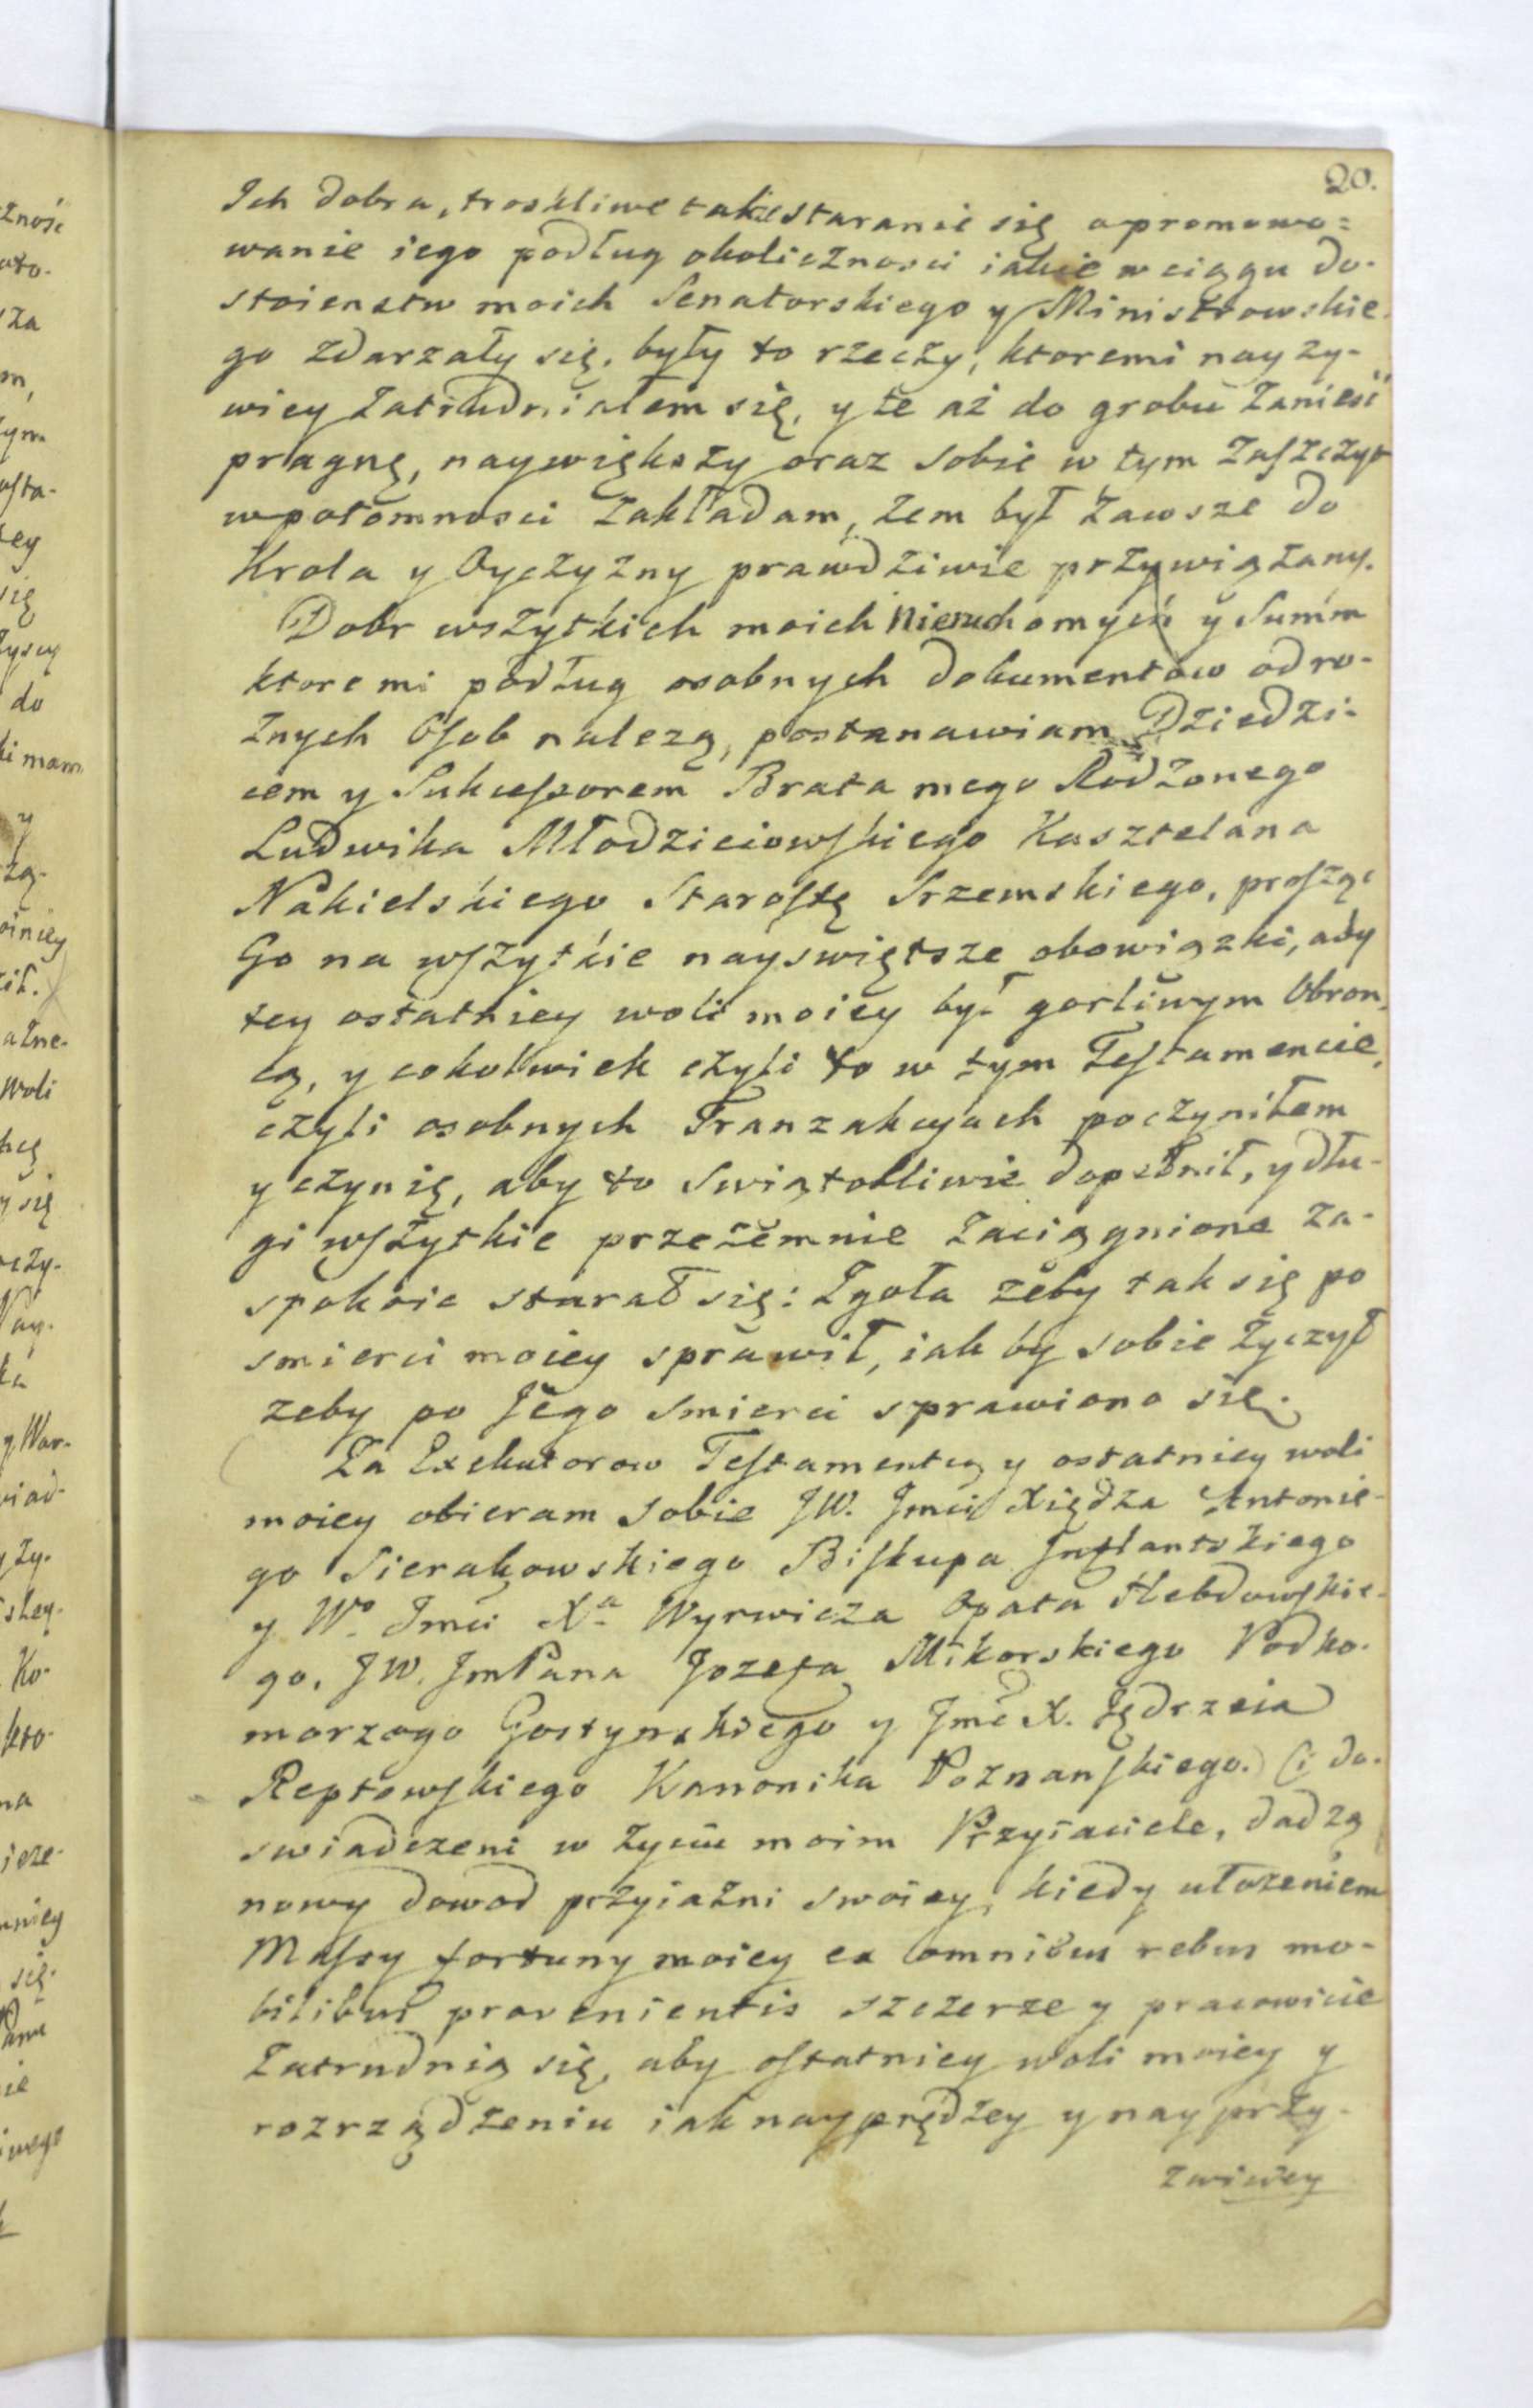 20.
Ich dobra, troskliwe takie staranie się o promowo=
wanie iego podług okolicznosci iakie w ciągu do-
stoienstw moich Senatorskiego y Ministrowskie
go zdarzały się, były to rzeczy, ktoremi nayzy-
wiey zatrudniałem się, y te aż do grobu zanieść
pragnę, naywiększy oraz sobie w tym zaszczyt
w potomnosci zakładam, żem był zawsze do
Krola y Oyczyzny prawdziwie przywiązany.
Dobr wszytkich moich Nieruchomych y Summ
ktoremi podług osobnych dokumentow od ro-
żnych Osob należą, postanawiam Dziedzi-
cem y Sukcessorem Brata mego Rodzonego
Ludwika Młodzieiowskiego Kasztelana
Nakielskiego Starostę Srzemskiego, prosząc
Go na wszytkie nayswiętsze obowiązki, aby
tey ostatniey woli moiey był gorliwym Obron
cą, y cokolwiek czyli to w tym Testamencie,
czyli osobnych Tranzakcyach poczyniłem
y czynię, aby to Swiątobliwie dopełnił, y dłu-
gi wszytkie przezemnie zaciągnione za-
spokoic starał się: Zgoła żeby tak się po
smierci moiey sprawił, iak by sobie życzył
zeby po Jego smierci sprawiono się.
Za Exekutorow Testamentu y ostatniey woli
moiey obieram sobie JW. Jmci Xiędza Antonie-
go Sierakowskiego Biskupa Inflantskiego
y Wo Jmci Xa Wyrwicza Opata Hebdowskie-
go, JW. JmPana Jozefa Mikorskiego Podko-
morzego Gostynskiego y Jmć X. Jędrzeia
Reptowskiego Kanonika Poznanskiego. Ci do-
swiadczeni w życiu moim Przyiaciele, dadzą
nowy dowod przyiaźni swoiey, kiedy ułożeniem
Massy fortuny moiey ex omnibus rebus mo-
bilibus provenientis szczerze y pracowicie
zatrudnią się, aby ostatniey woli moiey y
rozrządzeniu iak nayprędzey y nayprzy-
zwiciey